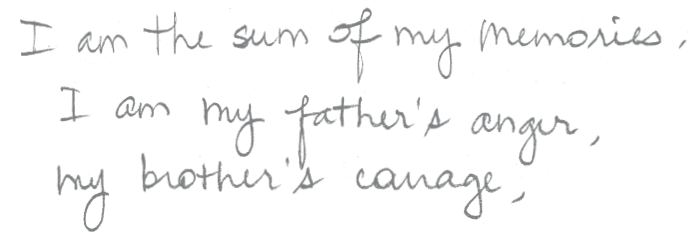 I am the sum of my memories,
I am my father's anger,
my brother's courage,